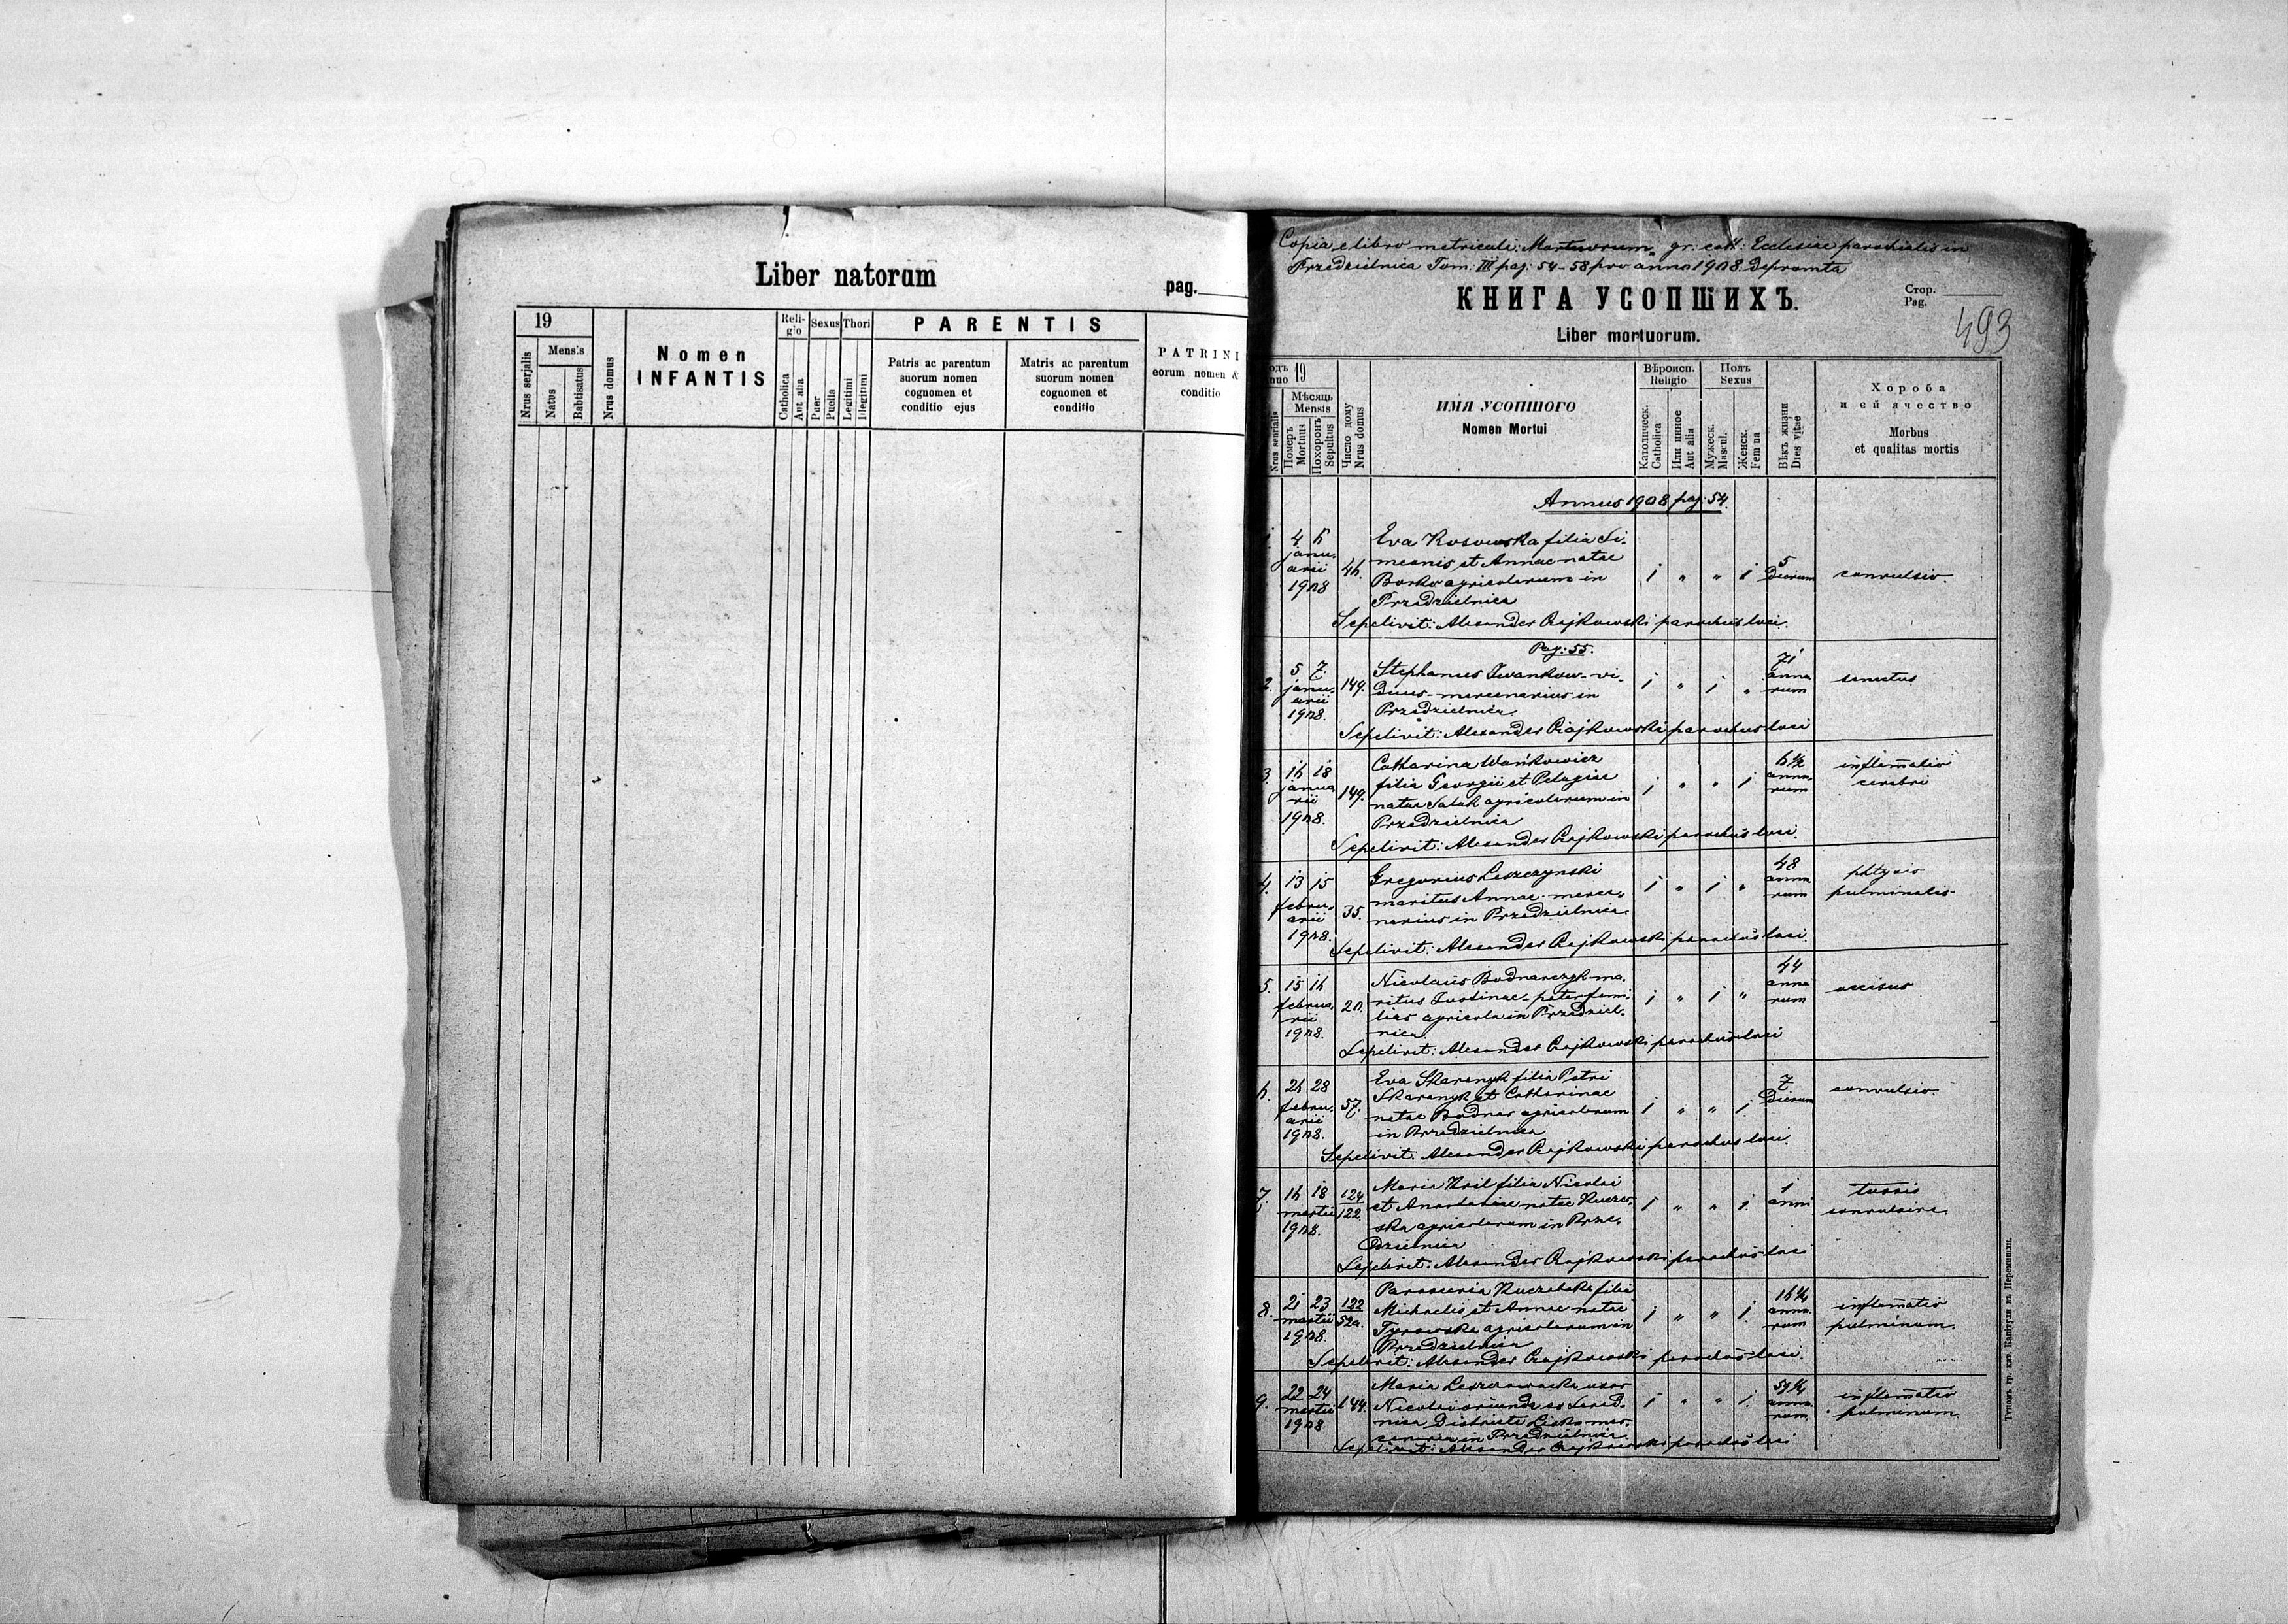 Liber natorum
pag.
19
Nrus serjalis
Mensis
Natus
Babtisatus
Nrus domus
Nomen
INFANTIS
Religio
Catholica
Aut alia
Sexus
Puer
Puella
Thori
Legitimi
Illegitimi
PARENTIS
Patris ac parentum
suorum nomen
cognomen et
conditio ejus
Matris ac parentum
suorum nomen
cognomen et
conditio
PATRINI
eorum nomen &
conditio
Copia e libro metricali: Mortuorum, gr: cath: Ecclesiae parochialis in
Przedzielnica Tom: III pag: 54-58 pro anno 1908. depromta
КНИГА УСОПШИХЪ.
Liber mortuorum.
Стор.
Pag.
493
19
Nrus serialis
Мѣсяць
Mensis
Померъ
Mortuus
Похоронъ
Sepultus
Число дому
Nrus domus
ИМЯ УСОПШОГО
Nomen Mortui
Вѣроисп.
Religio
Католическ.
Catholica
Или инное
Aut alia
Полъ
Sexus
Мужеск.
Mascul.
Женск.
Femina
Вѣкъ жизни
Dies vitae
Хороба
и ей ячество
Morbus
et qualitas mortis
Annus 1908 pag: 54.
1. 4 6 januarii 1908 46. Eva Kosowska filia Si-
meonis et Annae natae
Borko agricolarum in
Przedzielnica
1 " " 1 5 dierum convulsio.
Sepelivit: Alexander Czajkowski parochus loci.
Pag: 55.
2. 5 7. januarii 1908. 149. Stephanus Iwankow- vi-
duus- mercenarius in
Przedzielnica
1 " 1 " 71 annorum senectus
Sepelivit: Alexander Czajkowski parochus loci
3. 16 18 januarii 1908. 149. Catharina Wańkowicz
filia Georgii et Pelagiae
natae Salak agricolarum in
Przedzielnica
1 " " 1 6 ½ annorum inflamatio
cerebri
Sepelivit: Alexander Czajkowski parochus loci.
4. 13 15 februarii 1908. 35. Gregorius Leszczynski
maritus Annae- merce-
narius in Przedzielnica.
1 " 1 " 48 annorum phtysis
pulminalis
Sepelivit: Alexander Czajkowski parochus loci.
5. 15 16 februarii 1908. 20. Nicolaus Bodnarczyk ma-
ritus Justinae- pater fami-
lias agricola in Przedziel-
nica.
1 " 1 " 44 annorum occisus
Sepelivit: Alexander Czajkowski parochus loci
6. 26 28 februarii 1908. 57. Eva Skaranyk filia Petri
Skaranyk et Catharinae
natae Bodnar agricolarum
in Przedzielnica
1 " " 1 7 dierum convulsio.
Sepelivit: Alexander Czajkowski parochus loci.
7. 16 18 martii 1908. 124/122 Maria filia Nicolai
et Anastasiae natae
agricolarum in Prze-
dzielnica
1 " " 1. 1 anni tussis
convulsiva.
Sepelivit: Alexander Czajkowski parochus loci
8. 21 23 martii 1908. 122/52a. Parascevia filia
Michaelis et Annae natae
Tyrawska agricolarum in
Przedzielnica
1 " " 1. 16 ¼ annorum inflamatio
pulminum.
Sepelivit: Alexander Czajkowski parochus loci.
9. 22 24 martii 1908 144. Maria uxor
Nicolai oriunda ex
Districti Lisko mer-
cenaria in Przedzielnica.
1 " " 1. 59 ¼ annorum inflamatio
pulminum.
Sepelivit: Alexander Czajkowski parochus loci
Типомъ гр. кат. Капітулы въ Перемышли.